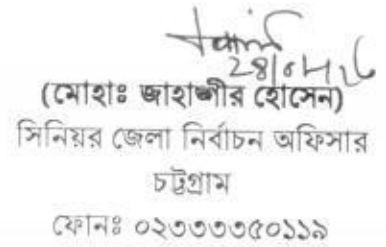 28/04/26
(মোহাঃ জাহাঙ্গীর হোসেন)
সিনিয়র জেলা নির্বাচন অফিসার
চট্টগ্রাম
ফোনঃ ০২৩৩৩৩৫০১১৯